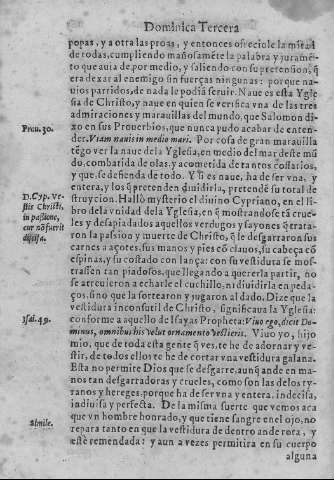 Dominica Tercera
popas, y a otra las proas, y entonces ofreciole la mitad
de todas, cumpliendo mañosaméte la palabra y juramé-
to que auia de por medio, y saliendo con su pretension, q̃
era dexar al enemigo sin fuerças ningunas: porque na-
uios partidos, de nada le podiã seruir. Naue es esta Ygle
sia de Christo, y naue en quien se verifica vna de las tres
admiraciones y marauillas del mundo, que Salomon di-
Prou. 30.
xo en sus Prouerbios, que nunca pudo acabar de enten-
der. Viam nauis in medio mari. Por cosa de gran marauilla
tẽgo ver la naue dela Yglesia, en medio del mar deste mũ
do, combatida de olas, y acometida de tantos cosarios,
y que se defienda de todo. Y si es naue, ha de ser vna, y
D. Cyp. ve-
stis Christi,
in passione,
cur nõ fuerit
diuisa.
entera, y los q̃ pretenden diuidirla, pretendẽ su total de
struycion. Hallò mysterio el diuino Cypriano, en el li
bro dela vnidad dela Yglesia, en q̃ mostrandose tã crue-
les y desapiadados aquellos verdugos y sayones q̃ trata-
ron la passion y muerte de Christo, q̃ le desgarraron sus
carnes a açotes, sus manos y pies cõ clauos, su cabeça cõ
espinas, y su costado con lança: con su vestidura se mos-
trassen tan piadosos, que llegando a quererla partir, no
se atreuieron a echarle el cuchillo, ni diuidirla en peda-
ços, sino que la sortearon y jugaron al dado. Dize que la
vestidura inconsutil de Christo, significaua la Yglesia:
Isai. 49.
conforme a aquello de Isayas Propheta: Viuo ego, dicit Do-
minus, omnibus his velut ornamento vestieris. Viuo yo, hijo
mio, que de toda esta gente q̃ ves, te he de adornar y ve-
stir, de todos ellos te he de cortar vna vestidura galana.
Esta no permite Dios que se desgarre, aunq̃ ande en ma-
nos tan desgarradoras y crueles, como son las delos ty-
ranos y hereges, porque ha de ser vna y entera, indecisa,
indiuisa y perfecta. De la misma suerte que vemos aca
Simile.
que vn hombre honrado, y que tiene sangre en el ojo, no
repara tanto en que la vestidura de dentro ande rota, y
aũ esté remendada: y aun a vezes permitira en su cuerpo
alguna